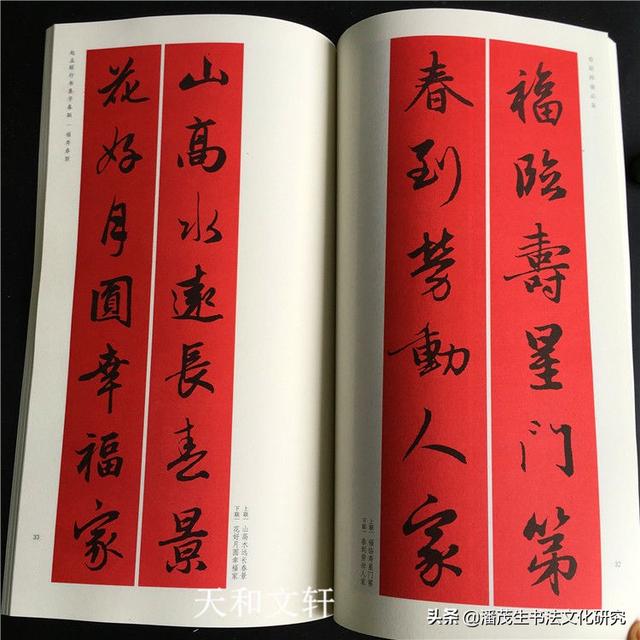 春联挥毫必备
福臨壽星门第
春到勞動人家
上联 福临寿星门第
下联 春到劳动人家
32
山高水遠長春景
花好月圓幸福家
上联 山高水远长春景
下联 花好月圆幸福家
赵孟頫行书集字春联 | 福寿春联
33
天和文轩
头条 @潘茂生书法文化研究